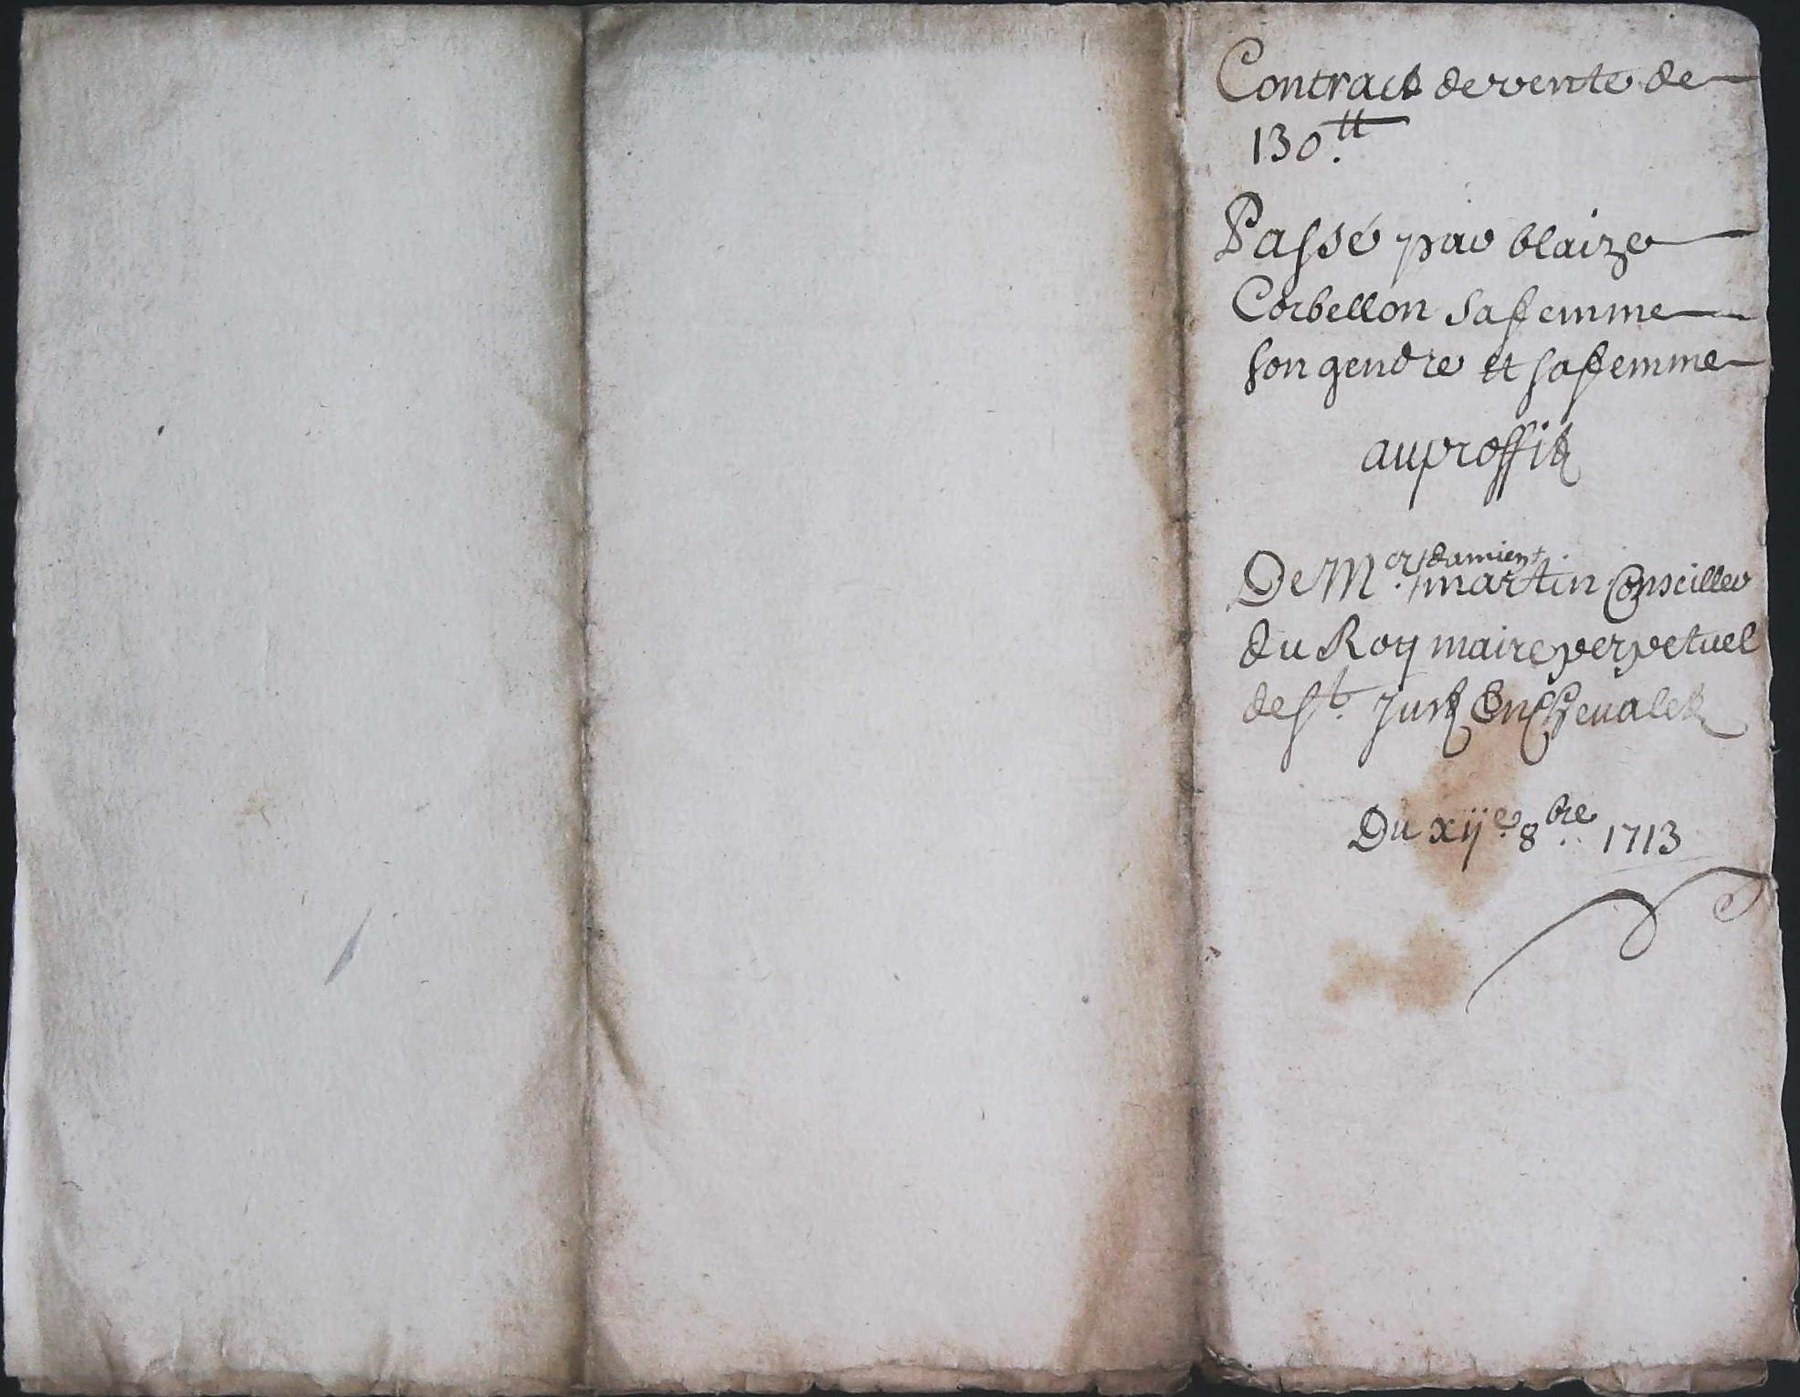 Contract de vente de
130.tt
Passé par blaize
Corbellon sa femme
son gendre et sa femme
au proffit
damient
De Mer. martin Conseiller
du Roy maire perpetuel
de st. Just En Chevalet
Du xije. 8bre. 1713